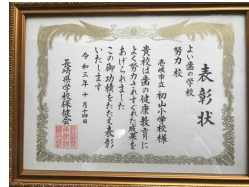 表彰状
よい歯の学校
努力校
壱岐市立初山小学校様
貴校は歯の健康教育に
よく努力されすぐれた成果を
あげられました
この御功績をたたえ表彰
いたします
令和三年十月十四日
長崎県学校保健会